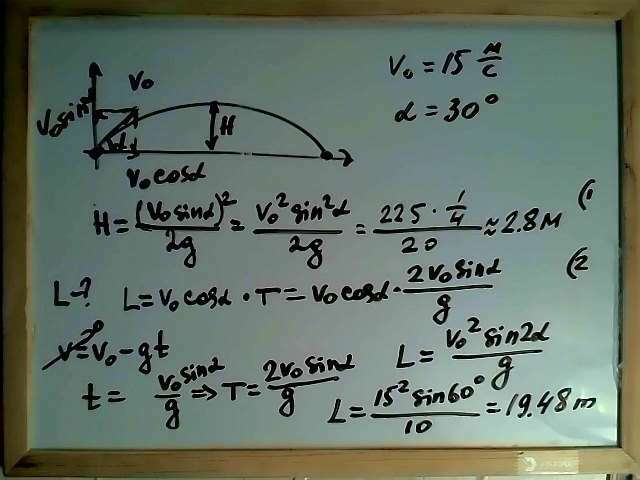 V₀ = 15 м/с
α = 30°
V₀
V₀ sin α
α
H
V₀ cos α
H = (V₀ sin α)² / 2g = V₀² sin² α / 2g = 225 · 1/4 / 20 ≈ 2.8 м (1
L - ? L = V₀ cos α · T = V₀ cos α · 2V₀ sin α / g (2
V = V₀ - gt
0
t = V₀ sin α / g ⇒ T = 2V₀ sin α / g
L = V₀² sin 2α / g
L = 15² sin 60° / 10 = 19.48 m